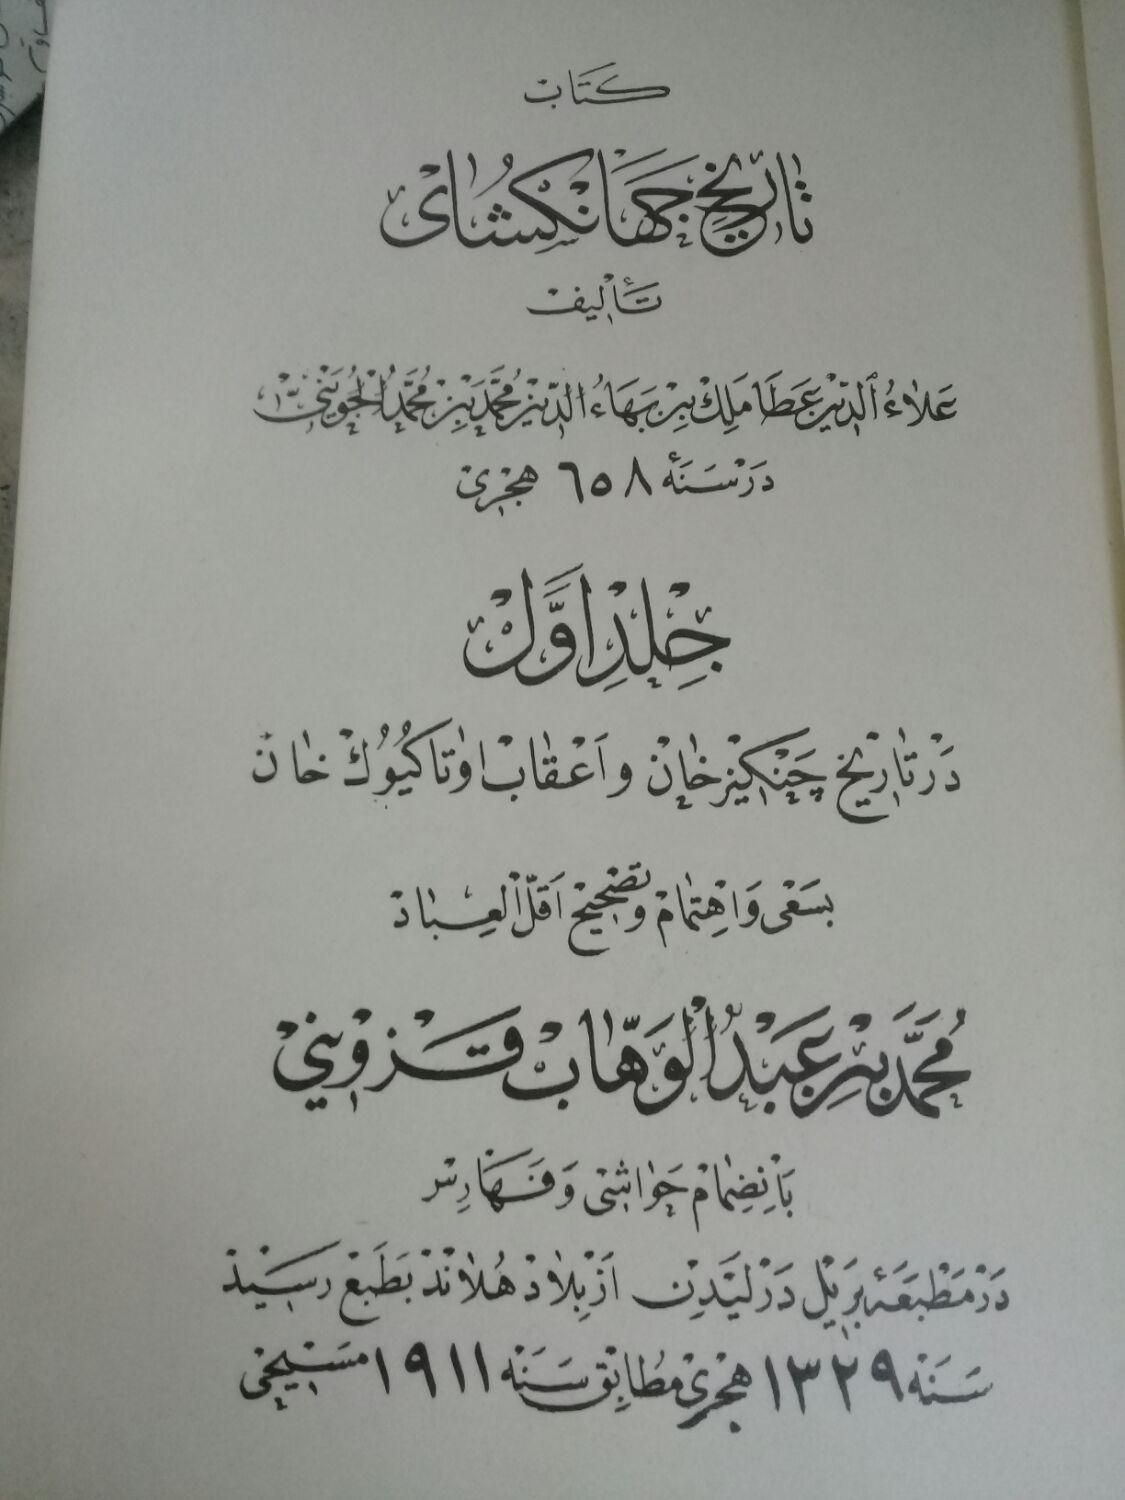 کتاب
تاریخ جهانکشای
تألیف
عَلاءُ الدّین عَطا مَلِک بِن بَهاءُ الدّین مُحَمَّد بن مُحَمَّد الجُوَینی
در سَنَهٔ ٦٥٨ هجری
جِلدِ اوَّل
دَر تاریخ چنکیز خان و اَعقاب او تا کیُوُک خان
بسَعی وَ اِهتِمام و تصحیح اَقلّ العِباد
مُحَمَّد بن عَبدُ الوَهّاب قَزوینی
بَانضِمام حَواشی وَ فَهارِس
دَر مَطبَعَهٔ بریل دَر لَیدِن از بِلاد هُلاند بطَبع رسید
سَنَه ١٣٢٩ هجری مُطابِق سَنَه ١٩١١ مَسیحی